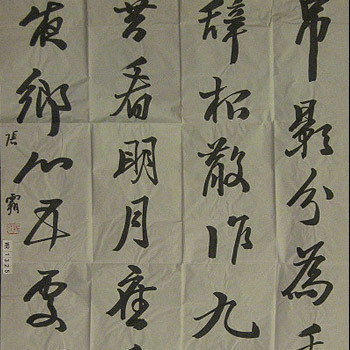 吊影分為千
辭根散作九
共看明月應
夜鄉心五處